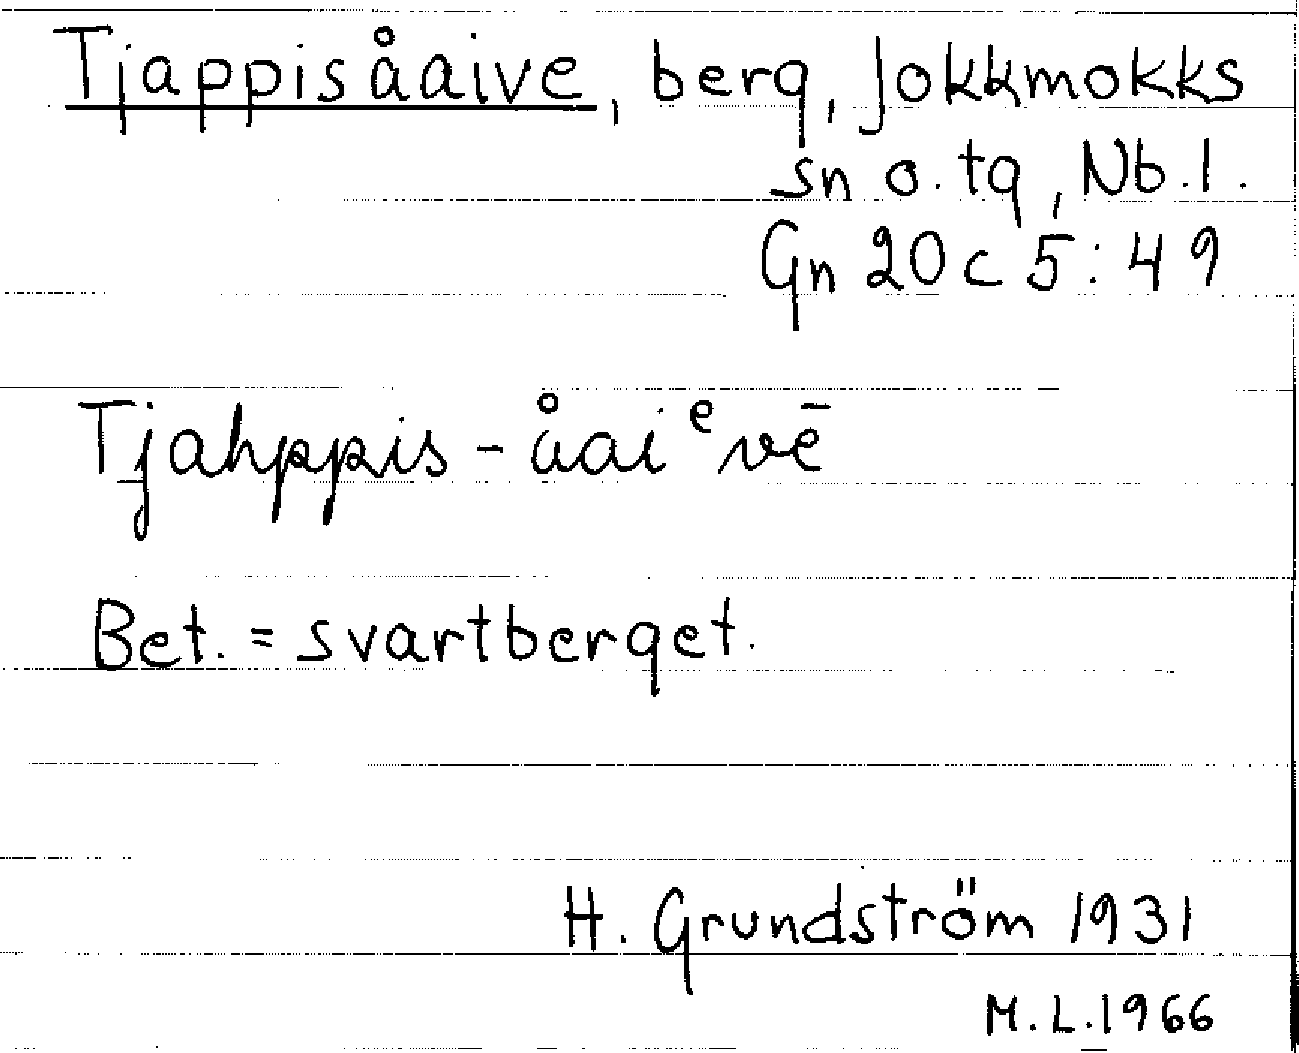 Tjappisåaive, berg, Jokkmokks
sn o. tg, Nb.l.
Gn 20c 5:49
Tjahppis-åaiᵉvē
Bet. = svartberget.
H. Grundström 1931
M.L.1966